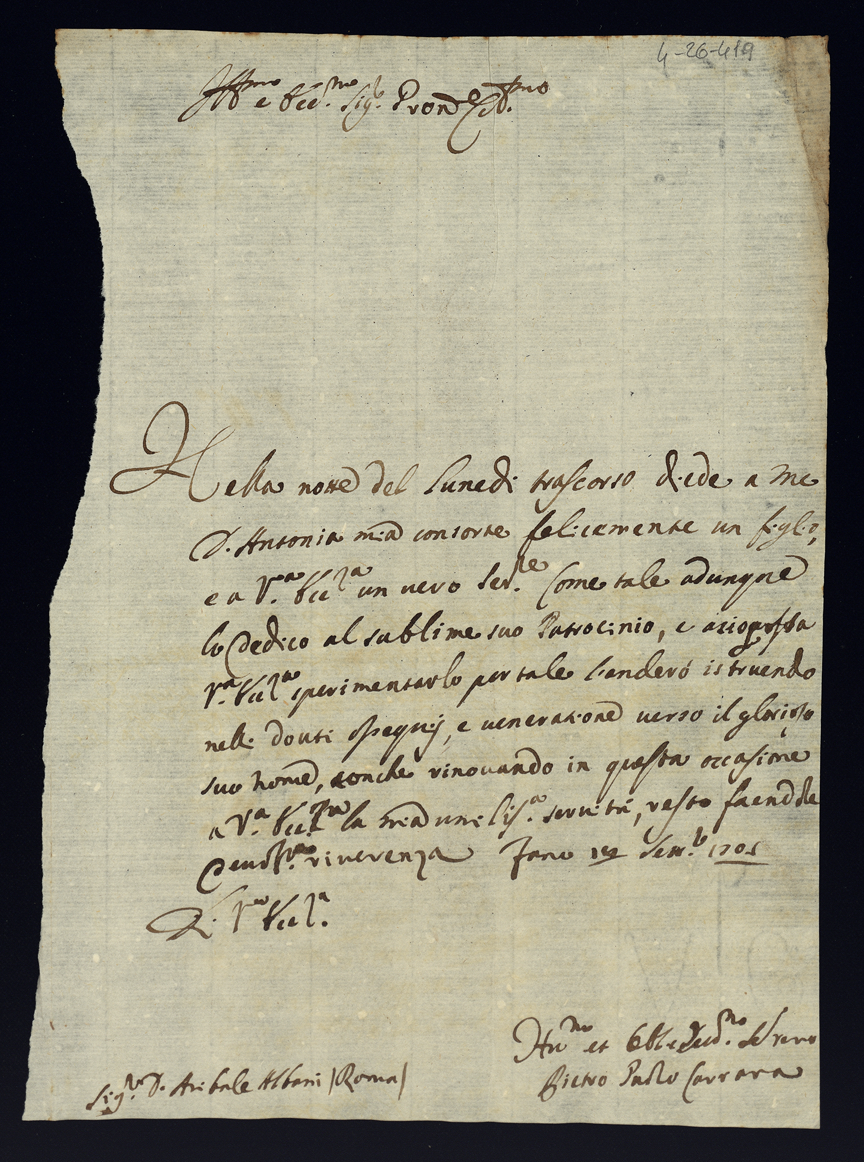 4-26-419
Ill.mo e Ecc.mo Sig.r Pron Col.mo
Nella notte del Lunedì trascorso diede a me
D. Antonia mia consorte felicemente un figlio,
e a V.a Ecc.za un vero Ser.re Come tale adunque
lo dedico al sublime suo Patrocinio, e acciò possa
V.a Ecc.za sperimentarlo per tale l'anderò istruendo
nelli douti ossequij, e ueneratione verso il glorioso
suo nome, conche rinouando in questa occasione
a V.a Ecc.za la mia umiliss.a seruitù, resto facendole
deuotis.ma riuerenza Fano Sett.b 1705
Di V.a Ecc.za
Hu.mo et Obl. Seruo
Sig.r D. Anibale Albani (Roma)
Pietro Paolo Carrara